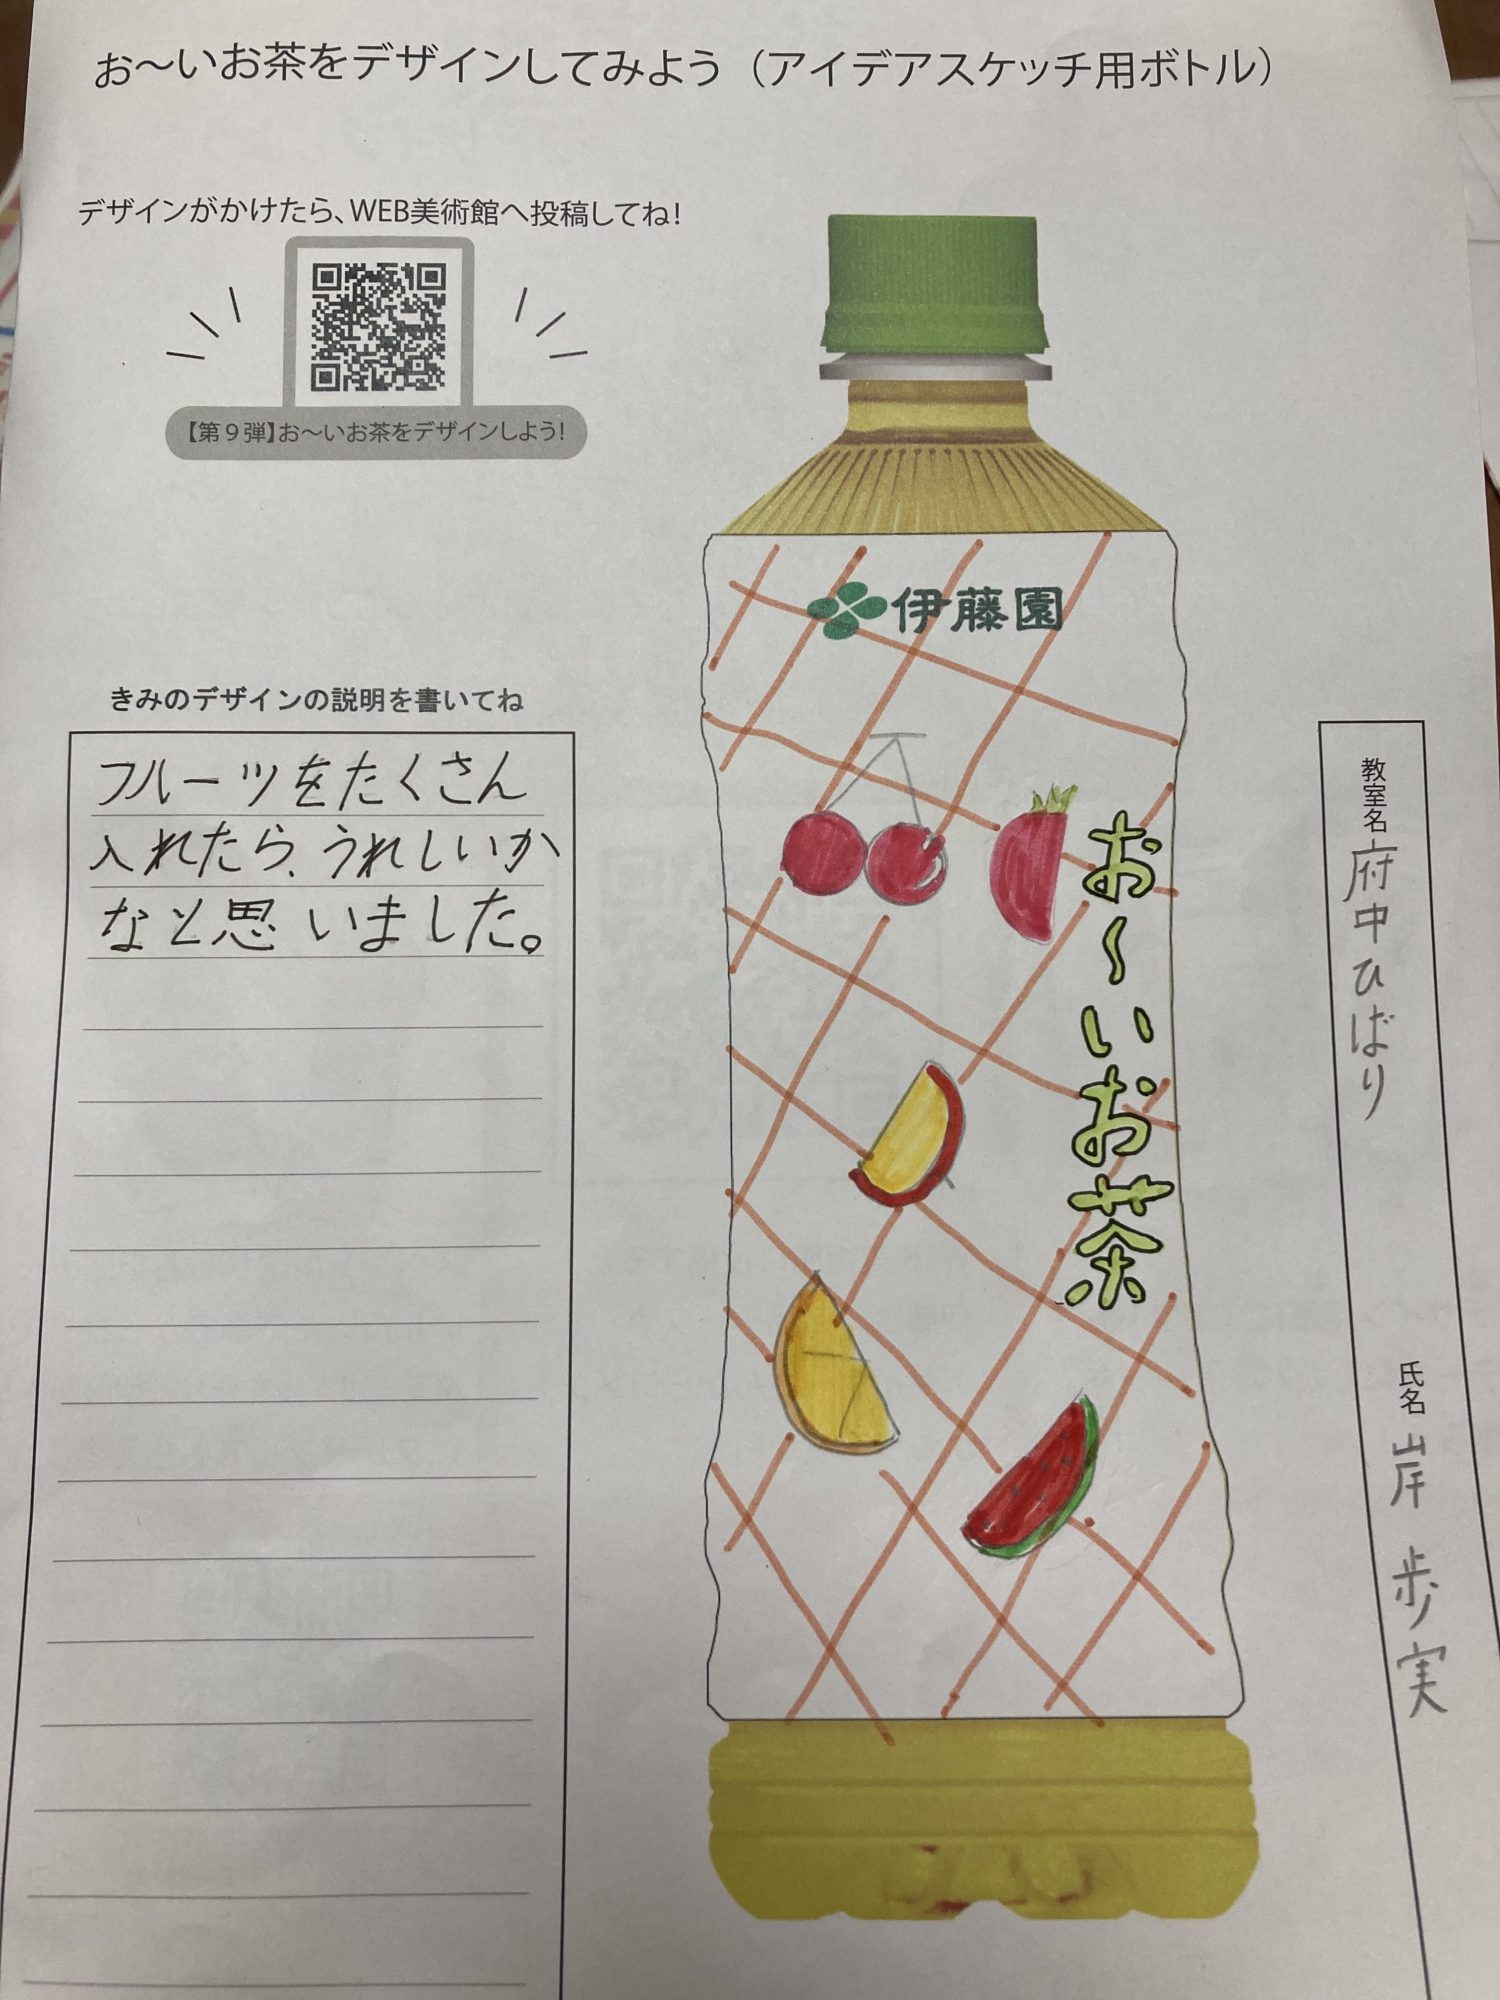 お～いお茶をデザインしてみよう（アイデアスケッチ用ボトル）
デザインがかけたら、WEB美術館へ投稿してね！
【第９弾】お～いお茶をデザインしよう！
きみのデザインの説明を書いてね
フルーツをたくさん
入れたら、うれしいか
なと思いました。
伊藤園
お～いお茶
教室名 府中ひばり
氏名 岸 歩実